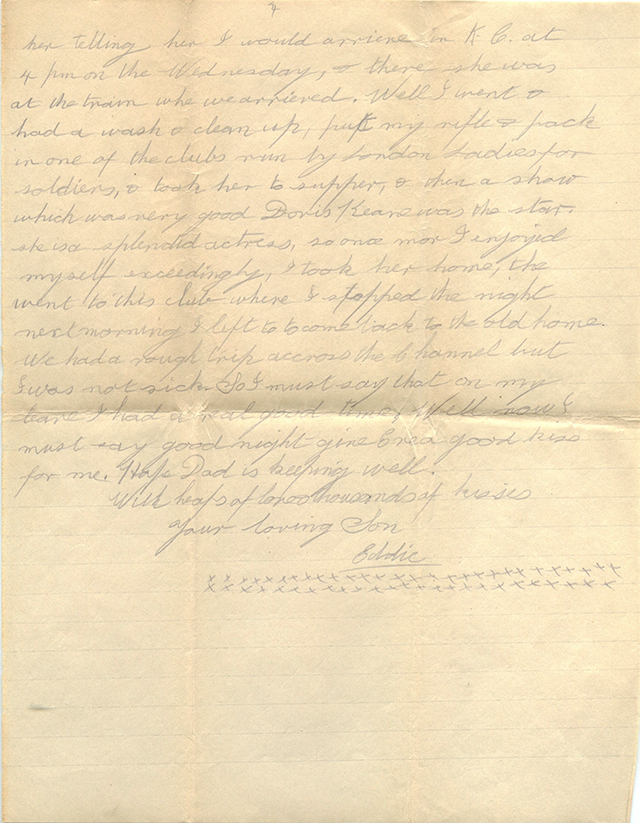 4
her telling her I would arriene in K. C. at
4 pm on the Wednesday, & there she was
at the train whe we arrieved. Well I went &
had a wash & clean up, put my rifle & pack
in one of the clubs run by London Ladies for
soldiers, & took her to supper, & then a show
which was very good Doris Keane was the star.
she is a splendid actress, so once mor I enjoyed
myself exceedingly, I took her home, the
went to this club where I stopped the night
next morning I left to come back to the old home.
We had a rough trip accross the Channel but
I was not sick. So I must say that on my
leave I had a real good time. Well now I
must say good night give a good kiss
for me. Hope Dad is keeping well.
With heaps of love & thousands of kisses
Your loving Son
Eddie
x x x x x x x x x x x x x x x x x x x x x x x x x x x x x x
x x x x x x x x x x x x x x x x x x x x x x x x x x x x x